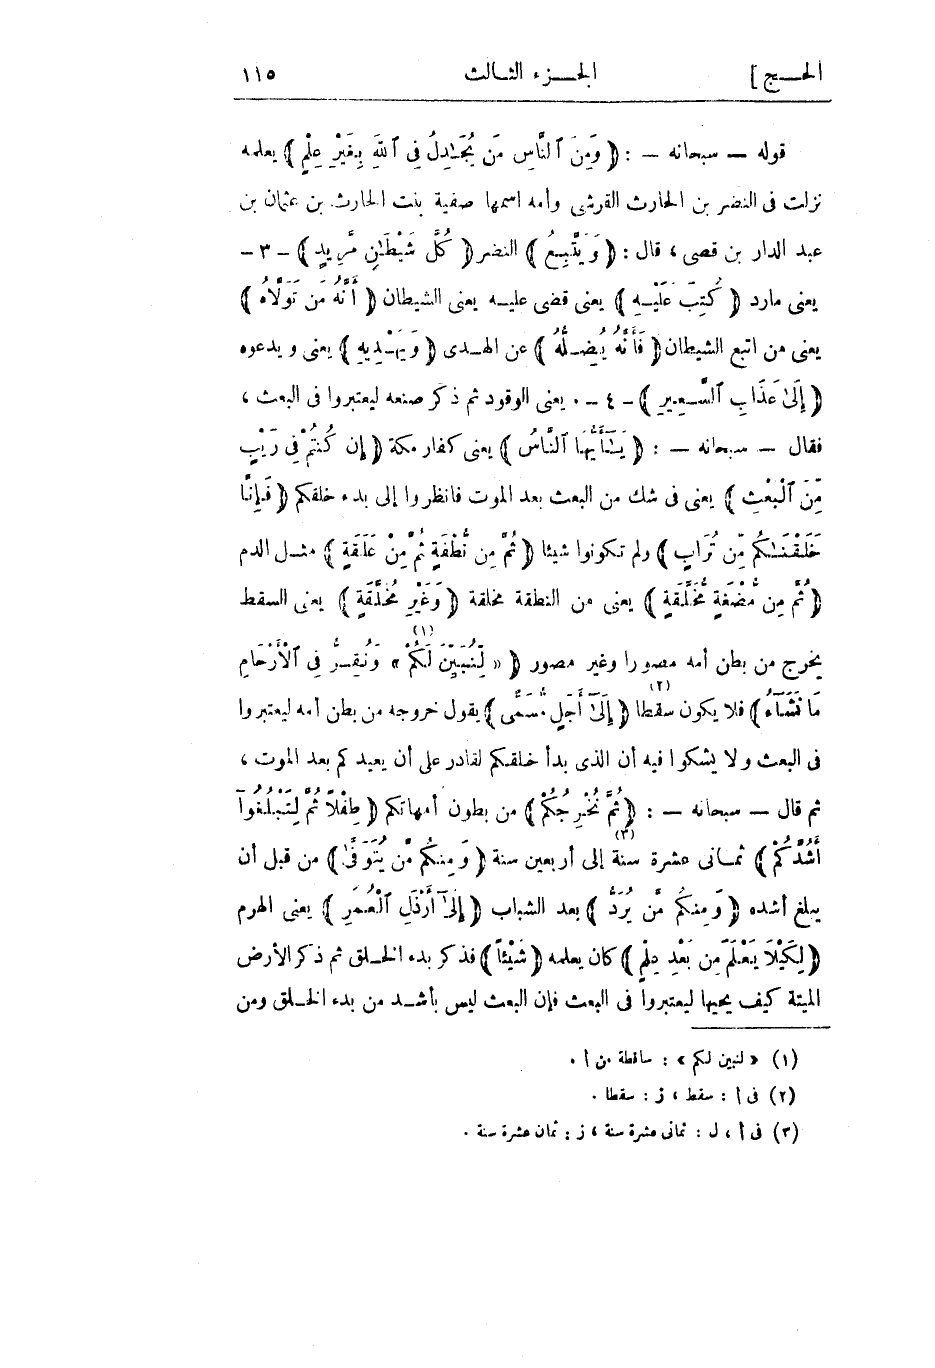 الحـــج ]   الجـــزء الثــالث   ١١٥
قوله — سبحانه — : ﴿ وَمِنَ ٱلنَّاسِ مَن يُجَـٰدِلُ فِى ٱللَّهِ بِغَيْرِ عِلْمٍ ﴾ يعلمه
نزلت فى النضر بن الحارث القرشى وأمه اسمها صفية بنت الحارث بن عثمان بن
عبد الدار بن قصى ، قال : ﴿ وَيَتَّبِعُ ﴾ النضر ﴿ كُلَّ شَيْطَـٰنٍ مَّرِيدٍ ﴾ - ٣ -
يعنى مارد ﴿ كُتِبَ عَلَيْـهِ ﴾ يعنى قضى عليــه يعنى الشيطان ﴿ أَنَّهُ مَن تَوَلَّاهُ ﴾
يعنى من اتبع الشيطان ﴿ فَأَنَّهُ يُضِـلُّهُ ﴾ عن الهـدى ﴿ وَيَهْـدِيهِ ﴾ يعنى ويدعوه
﴿ إِلَىٰ عَذَابِ ٱلسَّـعِيرِ ﴾ - ٤ - . يعنى الوقود ثم ذكر صنعه ليعتبروا فى البعث ،
فقال — سبحانه — : ﴿ يَـٰٓأَيُّهَا ٱلنَّاسُ ﴾ يعنى كفار مكة ﴿ إِن كُنتُمْ فِى رَيْبٍ
مِّنَ ٱلْبَعْثِ ﴾ يعنى فى شك من البعث بعد الموت فانظروا إلى بدء خلقكم ﴿ فَإِنَّا
خَلَقْنَـٰكُم مِّن تُرَابٍ ﴾ ولم تكونوا شيئا ﴿ ثُمَّ مِن نُّطْفَةٍ ثُمَّ مِنْ عَلَقَةٍ ﴾ مثـل الدم
﴿ ثُمَّ مِن مُّضْغَةٍ مُّخَلَّقَةٍ ﴾ يعنى من النطفة مخلقة ﴿ وَغَيْرِ مُخَلَّقَةٍ ﴾ يعنى السقط
يخرج من بطن أمه مصورا وغير مصور ﴿ « لِّنُبَيِّنَ لَكُمْ » (١) وَنُقِرُّ فِى ٱلْأَرْحَامِ
مَا نَشَآءُ ﴾ فلا يكون سقطا (٢) ﴿ إِلَىٰٓ أَجَلٍ مُّسَمًّى ﴾ يقول خروجه من بطن أمه ليعتبروا
فى البعث ولا يشكوا فيه أن الذى بدأ خلقكم لقادر على أن يعيدكم بعد الموت ،
ثم قال — سبحانه — : ﴿ ثُمَّ نُخْرِجُكُمْ ﴾ من بطون أمهاتكم ﴿ طِفْلًا ثُمَّ لِتَبْلُغُوٓا
أَشُدَّكُمْ ﴾ ثمـانى عشرة سنة (٣) إلى أربعين سنة ﴿ وَمِنكُم مَّن يُتَوَفَّىٰ ﴾ من قبل أن
يبلغ أشده ﴿ وَمِنكُم مَّن يُرَدُّ ﴾ بعد الشباب ﴿ إِلَىٰٓ أَرْذَلِ ٱلْعُمُرِ ﴾ يعنى الهرم
﴿ لِكَيْلَا يَعْلَمَ مِن بَعْدِ عِلْمٍ ﴾ كان يعلمه ﴿ شَيْئًا ﴾ فذكر بدء الخـلق ثم ذكر الأرض
الميتة كيف يحييها ليعتبروا فى البعث فإن البعث ليس بأشــد من بدء الخـلق ومن
(١) « لنبين لكم » : ساقطة من أ .
(٢) فى أ : سقط ، ز : سقطا .
(٣) فى أ ، ل : ثمانى عشرة سنة ، ز : ثمان عشرة سنة .